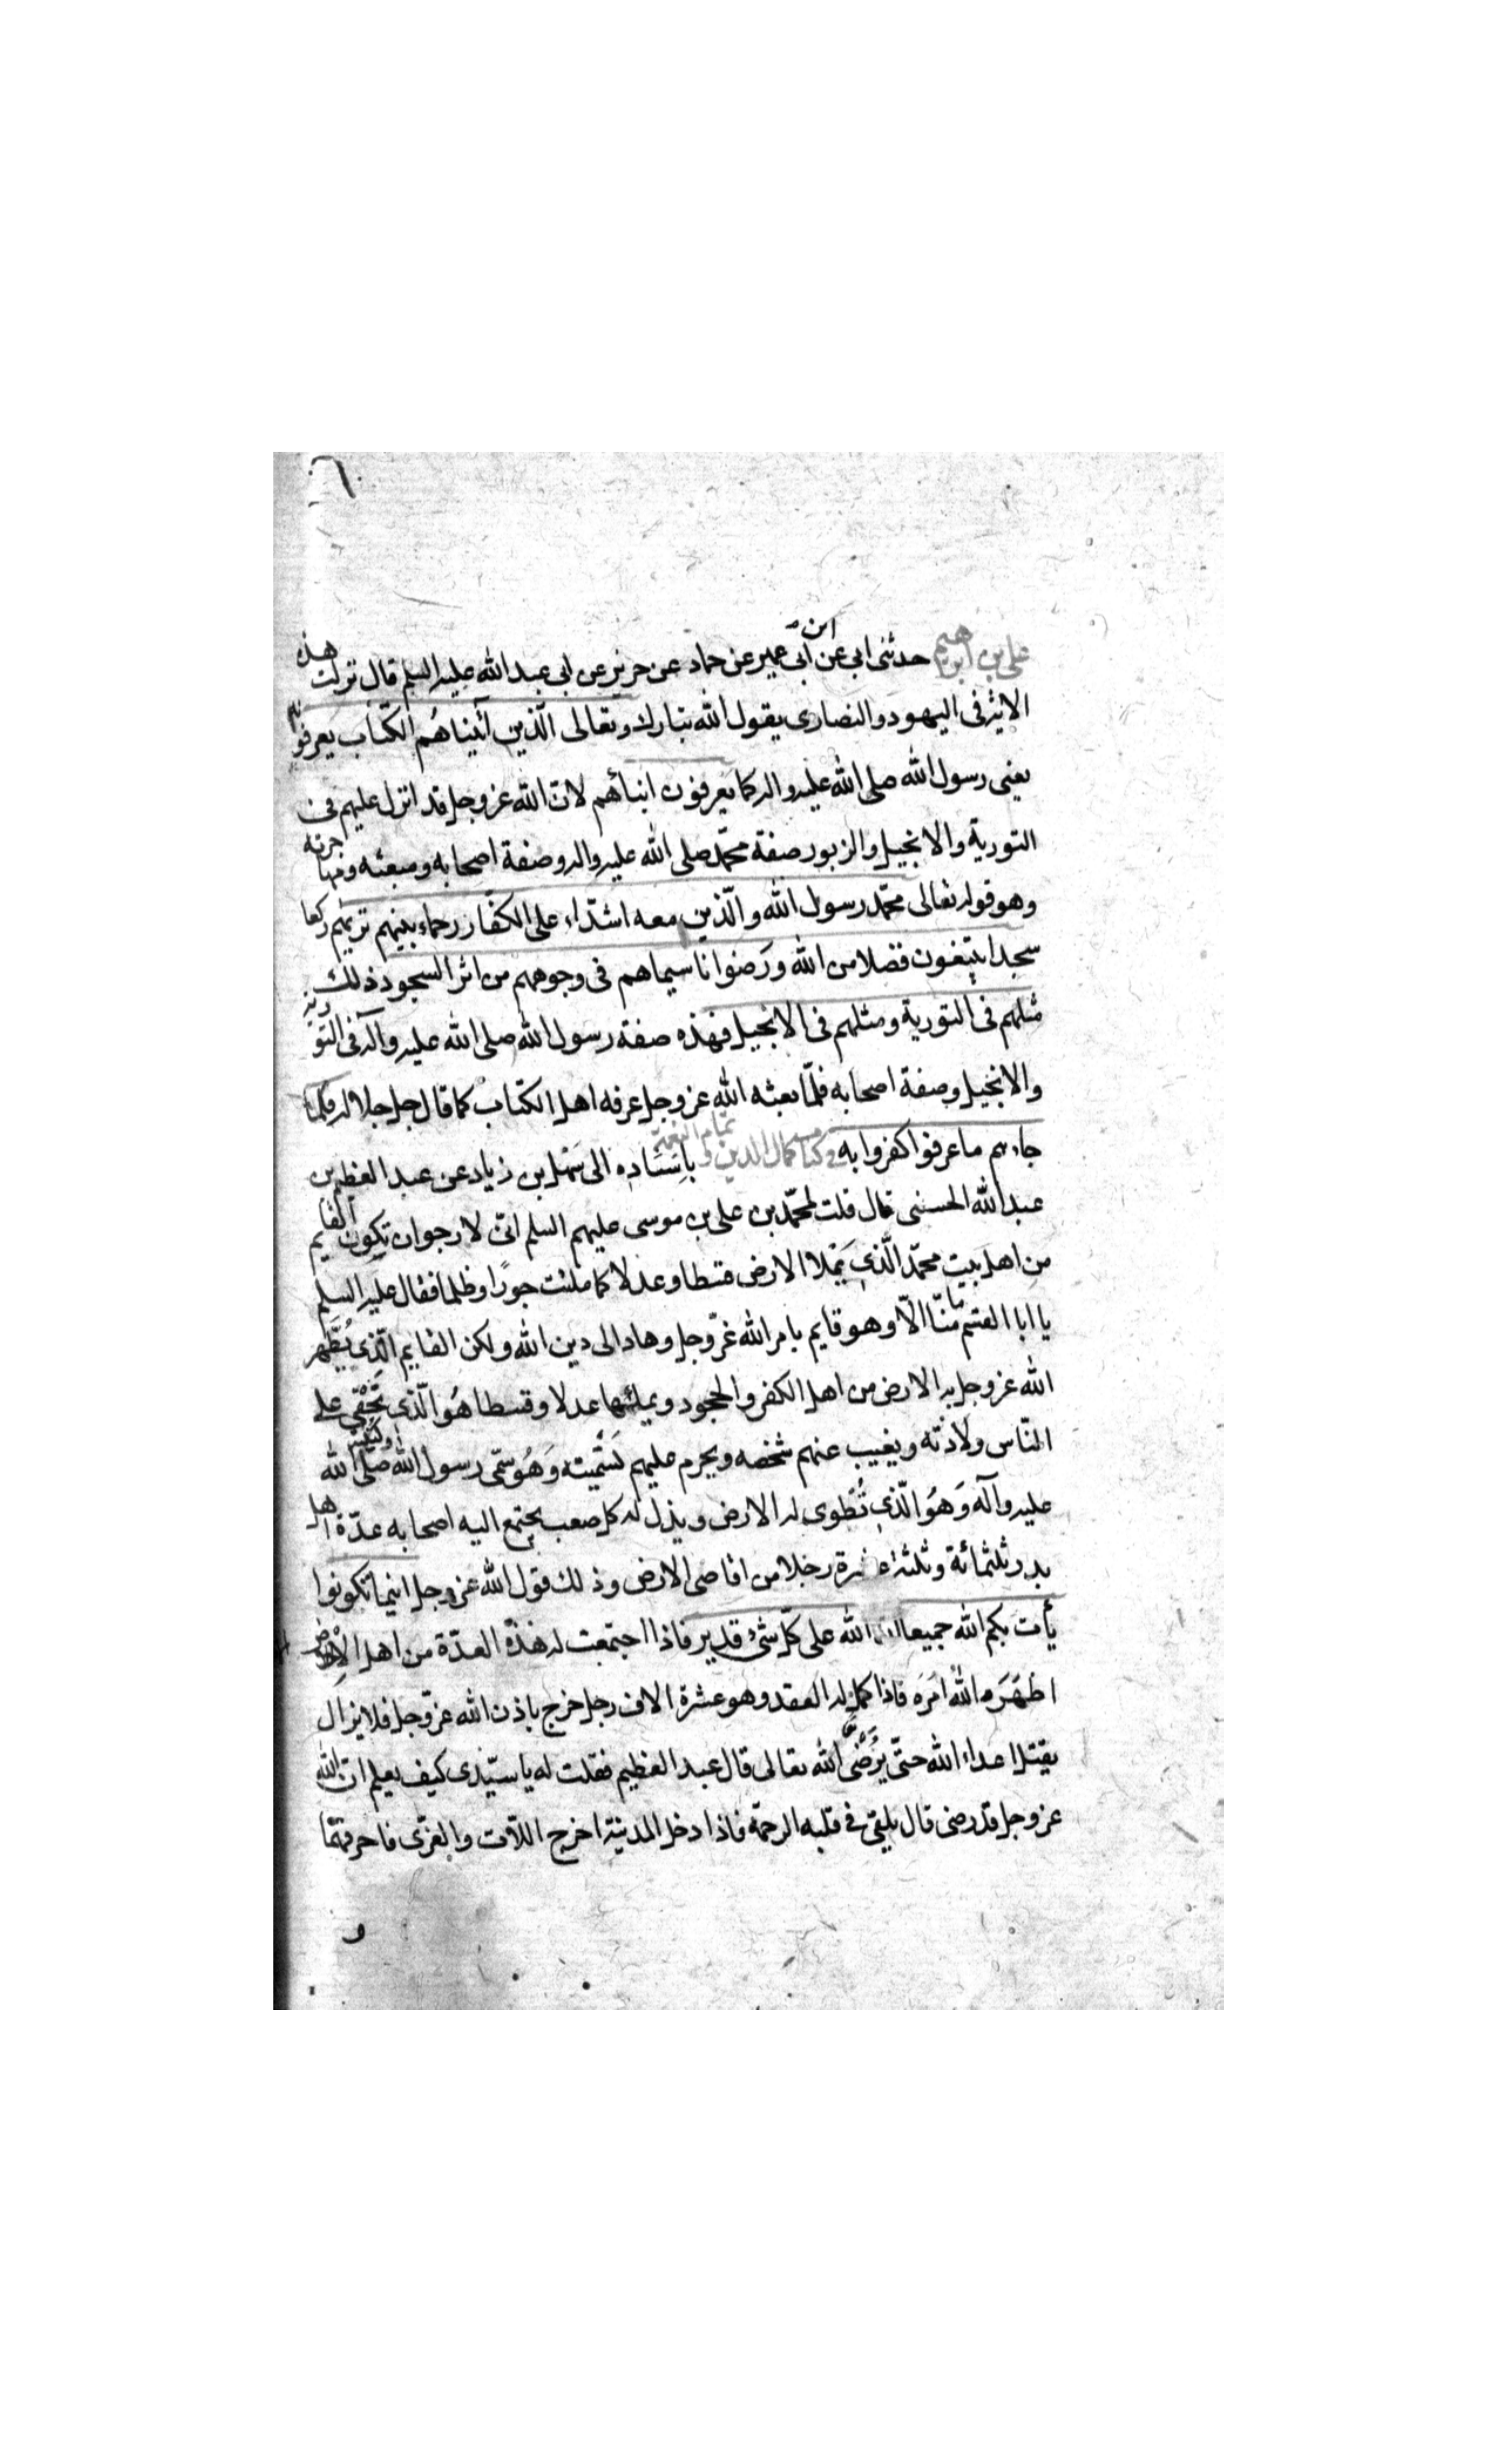 ٦
علي بن ابراهيم حدثنى ابى عن ابن ابى عمير عن حماد عن حريز عن ابى عبد الله عليه السلم قال نزلت هذه
الاية فى اليهود والنصارى يقول الله تبارك وتعالى الّذين آتيناهُم الكتاب يعرفونه
يعنى رسول الله صلى الله عليه واله كما يعرفون ابنائهم لانّ الله عز وجل قد انزل عليهم فى
التورية والانجيل والزبور صفة محمّد صلى الله عليه واله وصفة اصحابه ومبعثه ومهاجرته
وهو قوله تعالى محمّد رسول الله والّذين معه اشدّاء على الكفّار رحماء بينهم تريهم ركعا
سجدا يبتغون فضلا من الله ورَضوانا سيماهم فى وجوههم من اثر السجود ذلك
مثلهم فى التورية ومثلهم فى الانجيل فهذه صفة رسول الله صلى الله عليه وآله فى التورية
والانجيل وصفة اصحابه فلمّا بعثه الله عز وجل عرفه اهل الكتاب كما قال جل جلاله فلما
جاءهم ما عرفوا كفروا به وفي كتاب كمال الدين وتمام النعمة باسناده الى سهل بن زياد عن عبد العظيم بن
عبد الله الحسنى قال قلت لمحمّد بن على بن موسى عليهم السلم انّى لارجو ان تكون القايم
من اهل بيت محمّد الّذي يَملا الارض قسطا وعدلا كما ملئت جورًا وظلما فقال عليه السلم
يا ابا القسم ما منّا الاّ وهو قايم بامر الله عزّ وجل وهاد الى دين الله ولكن القايم الّذى يُطَهِّر
الله عز وجل به الارض من اهل الكفر والجحود ويملئها عدلا وقسطا هُو الّذى تَخْفى على
النّاس ولادته ويغيب عنهم شخصه ويحرم عليهم تَسْمِيته وَهُو سَمّى رسول الله وكنيه صلّى الله
عليه وآله وَهُو الّذي تُطوى له الارض ويذل له كل صعب يجتمع اليه اصحابه عدّة اهل
بدر ثلثمائة وثلثة عشرة رجلا من اقاصى الارض وذلك قول الله عز وجل اينما تكونوا
يأت بكم الله جميعا ان الله على كلّ شئ قدير فاذا اجتمعت له هذه العدّة من اهل الارض
اظهَرَه الله امرَه فاذا كمل له العقد وهو عشرة الاف رجل خرج باذن الله عزّ وجل فلا يزال
يقتل اعداء الله حتّى يَرْضى الله تعالى قال عبد العظيم فقلت له يا سيّدى كيف يعلم انّ الله
عز وجل قد رضى قال يلقى فى قلبه الرحمة فاذا دخل المدينة اخرج اللاّت والعزّى فاحرقهما
و